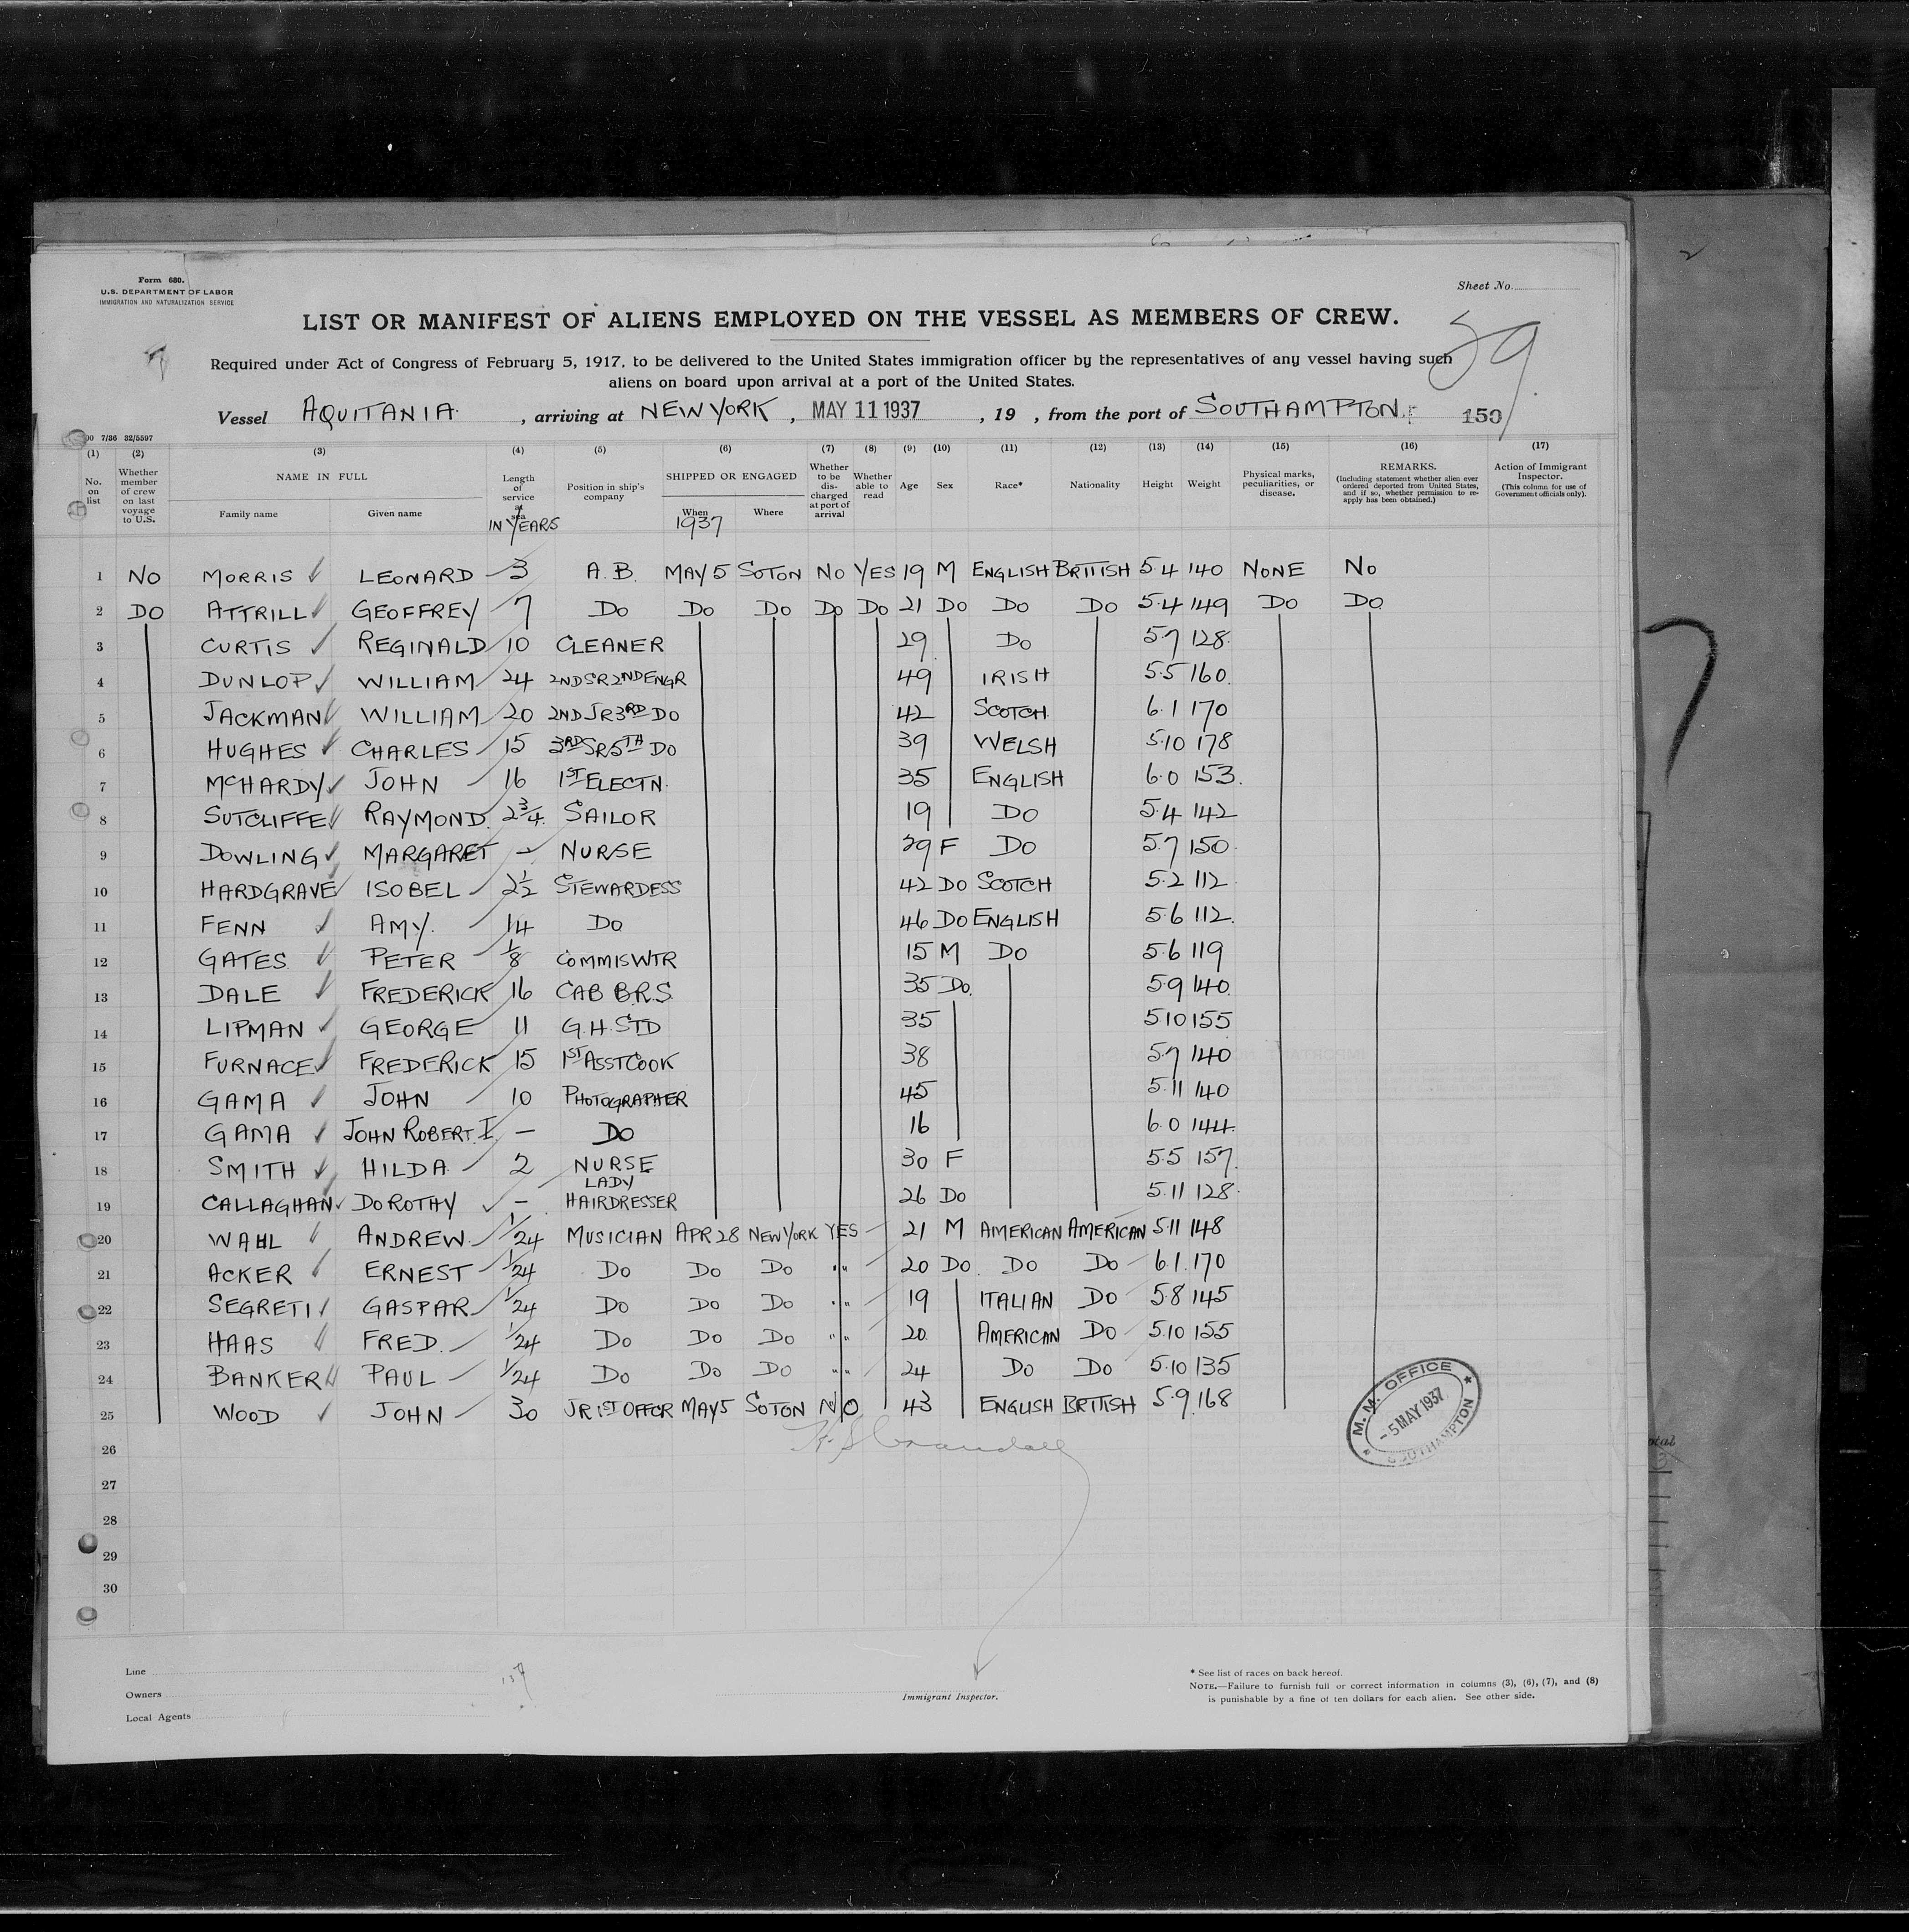 Form 680.
U.S. DEPARTMENT OF LABOR
IMMIGRATION AND NATURALIZATION SERVICE
Sheet No.
LIST OR MANIFEST OF ALIENS EMPLOYED ON THE VESSEL AS MEMBERS OF CREW.
59
Required under Act of Congress of February 5, 1917, to be delivered to the United States immigration officer by the representatives of any vessel having such
aliens on board upon arrival at a port of the United States.
Vessel AQUITANIA. , arriving at NEW YORK , MAY 11 1937 , 19 , from the port of SOUTHAMPTON. 159
7/36 32/5597
(1) (2) (3) (4) (5) (6) (7) (8) (9) (10) (11) (12) (13) (14) (15) (16) (17)
No. on list
Whether member of crew on last voyage to U.S.
NAME IN FULL
Family name Given name
Length of service at sea IN YEARS
Position in ship's company
SHIPPED OR ENGAGED
When 1937 Where
Whether to be discharged at port of arrival
Whether able to read
Age
Sex
Race*
Nationality
Height
Weight
Physical marks, peculiarities, or disease.
REMARKS.
(Including statement whether alien ever ordered deported from United States, and if so, whether permission to re-apply has been obtained.)
Action of Immigrant Inspector.
(This column for use of Government officials only).
1 NO MORRIS LEONARD 3 A.B. MAY 5 SOTON NO YES 19 M ENGLISH BRITISH 5.4 140 NONE NO
2 DO ATTRILL GEOFFREY 7 DO DO DO DO DO 21 DO DO DO 5.4 149 DO DO
3 CURTIS REGINALD 10 CLEANER 29 DO 5.7 128
4 DUNLOP WILLIAM 24 2ND SR 2ND ENGR 49 IRISH 5.5 160
5 JACKMAN WILLIAM 20 2ND JR 3RD DO 42 SCOTCH 6.1 170
6 HUGHES CHARLES 15 3RD SR 5TH DO 39 WELSH 5.10 178
7 MCHARDY JOHN 16 1ST ELECTN. 35 ENGLISH 6.0 153
8 SUTCLIFFE RAYMOND. 2 3/4 SAILOR 19 DO 5.4 142
9 DOWLING MARGARET - NURSE 29 F DO 5.7 150
10 HARDGRAVE ISOBEL 2 1/2 STEWARDESS 42 DO SCOTCH 5.2 112
11 FENN AMY. 14 DO 46 DO ENGLISH 5.6 112
12 GATES PETER 1/8 COMMIS WTR 15 M DO 5.6 119
13 DALE FREDERICK 16 CAB B.R.S. 35 DO. 5.9 140
14 LIPMAN GEORGE 11 G.H. STD 35 5.10 155
15 FURNACE FREDERICK 15 1ST ASST COOK 38 5.7 140
16 GAMA JOHN 10 PHOTOGRAPHER 45 5.11 140
17 GAMA JOHN ROBERT. I - DO 16 6.0 144
18 SMITH HILDA 2 NURSE 30 F 5.5 157
19 CALLAGHAN DOROTHY - LADY HAIRDRESSER 26 DO 5.11 128
20 WAHL ANDREW. 1/24 MUSICIAN APR 28 NEW YORK YES 21 M AMERICAN AMERICAN 5.11 148
21 ACKER ERNEST 1/24 DO DO DO " " 20 DO. DO DO 6.1 170
22 SEGRETI GASPAR 1/24 DO DO DO " " 19 ITALIAN DO 5.8 145
23 HAAS FRED. 1/24 DO DO DO " " 20 AMERICAN DO 5.10 155
24 BANKER PAUL 1/24 DO DO DO " " 24 DO DO 5.10 135
25 WOOD JOHN 30 JR 1ST OFFCR MAY 5 SOTON NO 43 ENGLISH BRITISH 5.9 168
26
27
28
29
30
M. M. OFFICE
-5 MAY 1937
SOUTHAMPTON
Line
Owners
Local Agents
Immigrant Inspector.
* See list of races on back hereof.
NOTE.—Failure to furnish full or correct information in columns (3), (6), (7), and (8)
is punishable by a fine of ten dollars for each alien. See other side.